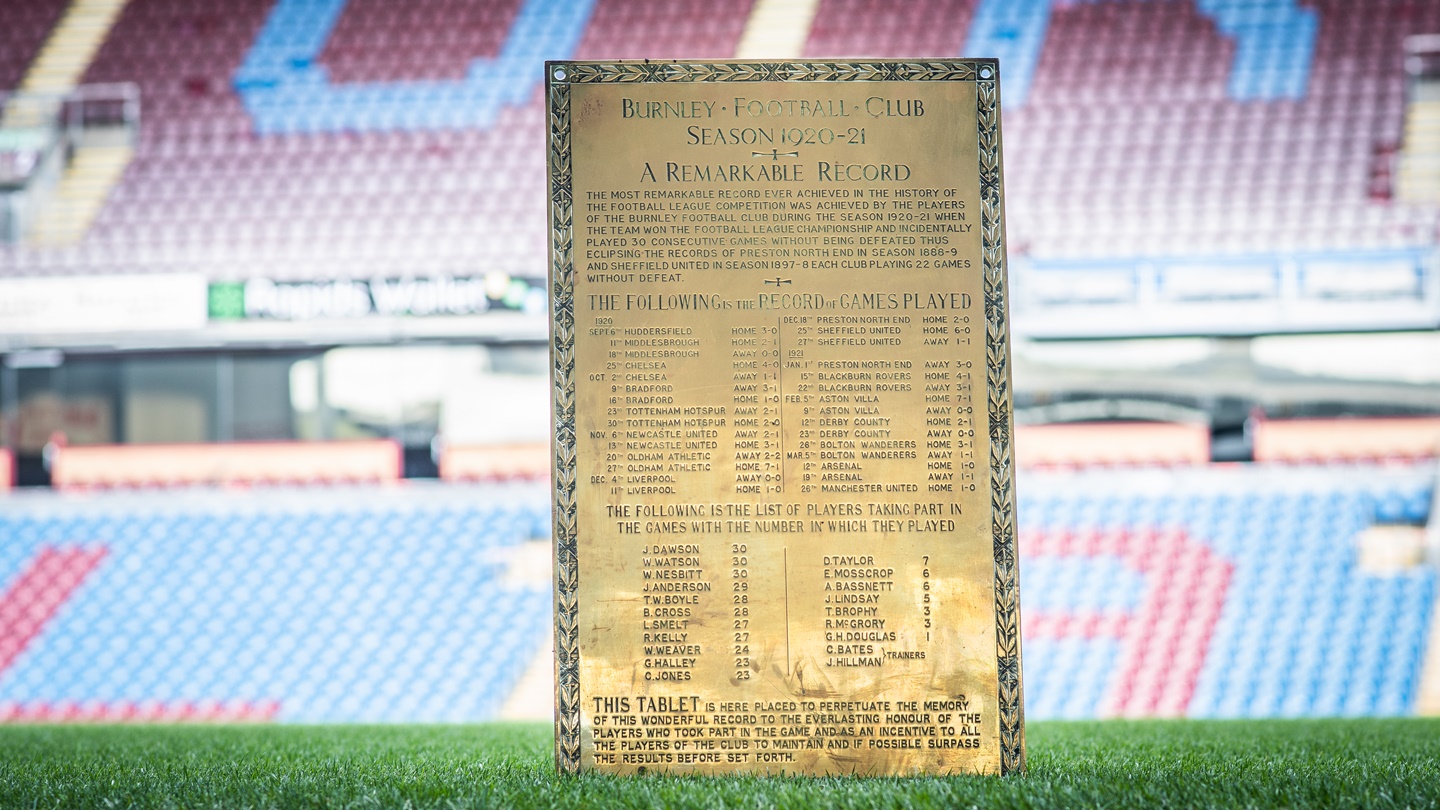 BURNLEY · FOOTBALL · CLUB
SEASON 1920-21
A REMARKABLE RECORD
THE MOST REMARKABLE RECORD EVER ACHIEVED IN THE HISTORY OF
THE FOOTBALL LEAGUE COMPETITION WAS ACHIEVED BY THE PLAYERS
OF THE BURNLEY FOOTBALL CLUB DURING THE SEASON 1920-21 WHEN
THE TEAM WON THE FOOTBALL LEAGUE CHAMPIONSHIP AND INCIDENTALLY
PLAYED 30 CONSECUTIVE GAMES WITHOUT BEING DEFEATED THUS
ECLIPSING THE RECORDS OF PRESTON NORTH END IN SEASON 1888-9
AND SHEFFIELD UNITED IN SEASON 1897-8 EACH CLUB PLAYING 22 GAMES
WITHOUT DEFEAT.
THE FOLLOWING IS THE RECORD OF GAMES PLAYED
1920
SEPT 6TH HUDDERSFIELD HOME 3-0
11TH MIDDLESBROUGH HOME 2-1
18TH MIDDLESBROUGH AWAY 0-0
25TH CHELSEA HOME 4-0
OCT 2ND CHELSEA AWAY 1-1
9TH BRADFORD AWAY 3-1
16TH BRADFORD HOME 1-0
23RD TOTTENHAM HOTSPUR AWAY 2-1
30TH TOTTENHAM HOTSPUR HOME 2-0
NOV. 6TH NEWCASTLE UNITED AWAY 2-1
13TH NEWCASTLE UNITED HOME 3-1
20TH OLDHAM ATHLETIC AWAY 2-2
27TH OLDHAM ATHLETIC HOME 7-1
DEC. 4TH LIVERPOOL AWAY 0-0
11TH LIVERPOOL HOME 1-0
DEC. 18TH PRESTON NORTH END HOME 2-0
25TH SHEFFIELD UNITED HOME 6-0
27TH SHEFFIELD UNITED AWAY 1-1
1921
JAN. 1ST PRESTON NORTH END AWAY 3-0
15TH BLACKBURN ROVERS HOME 4-1
22ND BLACKBURN ROVERS AWAY 3-1
FEB. 5TH ASTON VILLA HOME 7-1
9TH ASTON VILLA AWAY 0-0
12TH DERBY COUNTY HOME 2-1
23RD DERBY COUNTY AWAY 0-0
26TH BOLTON WANDERERS HOME 3-1
MAR. 5TH BOLTON WANDERERS AWAY 1-1
12TH ARSENAL HOME 1-0
19TH ARSENAL AWAY 1-1
26TH MANCHESTER UNITED HOME 1-0
THE FOLLOWING IS THE LIST OF PLAYERS TAKING PART IN
THE GAMES WITH THE NUMBER IN WHICH THEY PLAYED
J. DAWSON 30
W. WATSON 30
W. NESBITT 30
J. ANDERSON 29
T.W. BOYLE 28
B. CROSS 28
L. SMELT 27
R. KELLY 27
W. WEAVER 24
G. HALLEY 23
C. JONES 23
D. TAYLOR 7
E. MOSSCROP 6
A. BASSNETT 6
J. LINDSAY 5
T. BROPHY 3
R. McGRORY 3
G.H. DOUGLAS 1
C. BATES
J. HILLMAN } TRAINERS
THIS TABLET IS HERE PLACED TO PERPETUATE THE MEMORY
OF THIS WONDERFUL RECORD TO THE EVERLASTING HONOUR OF THE
PLAYERS WHO TOOK PART IN THE GAME AND AS AN INCENTIVE TO ALL
THE PLAYERS OF THE CLUB TO MAINTAIN AND IF POSSIBLE SURPASS
THE RESULTS BEFORE SET FORTH.